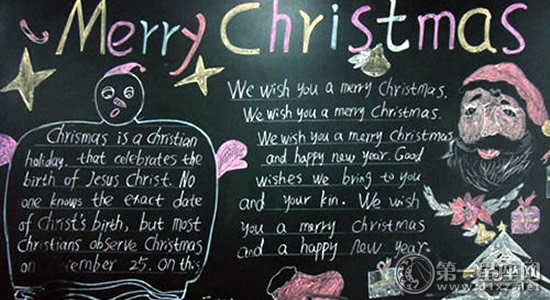 Merry Christmas
Chrismas is a christian
holiday. that celebrates the
birth of Jesus Christ. No
one knows the exact date
of Christ's birth, but most
christians observe Christmas
on 25. On this
We wish you a merry Christmas.
We wish you a merry Christmas.
We wish you a merry christmas
and happy new year. Good
wishes we bring to you
and your kin. We wish
you a merry christmas
and a happy new year.
第一星座网
www.d1xz.net